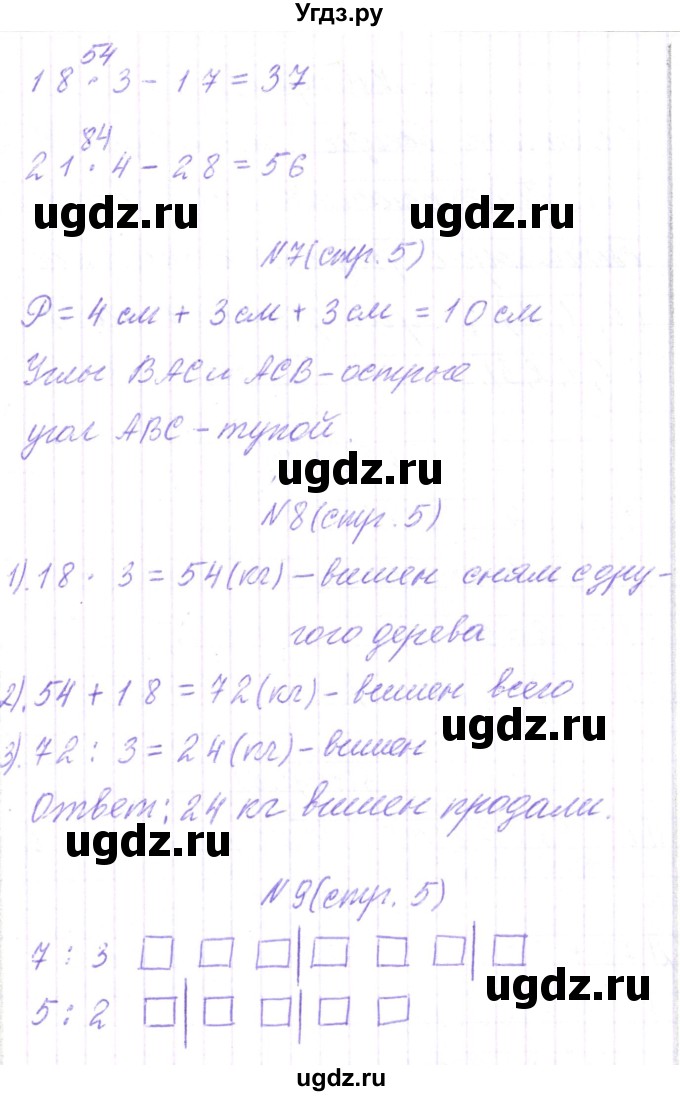 Угдз.ру
54
18 · 3 - 17 = 37
84
21 · 4 - 28 = 56
ugdz.ru
№7(стр. 5)
P = 4 см + 3 см + 3 см = 10 см
Углы BAC и ACB - острые
угол ABC - тупой.
ugdz.ru
№8(стр. 5)
1). 18 · 3 = 54(кг) - вишен снял с дру-
гого дерева
2). 54 + 18 = 72(кг) - вишен всего
ugdz.ru
3). 72 : 3 = 24(кг) - вишен
Ответ: 24 кг вишен продали.
ugdz.ru
№9(стр. 5)
7 : 3
ugdz.ru
5 : 2
ugdz.ru